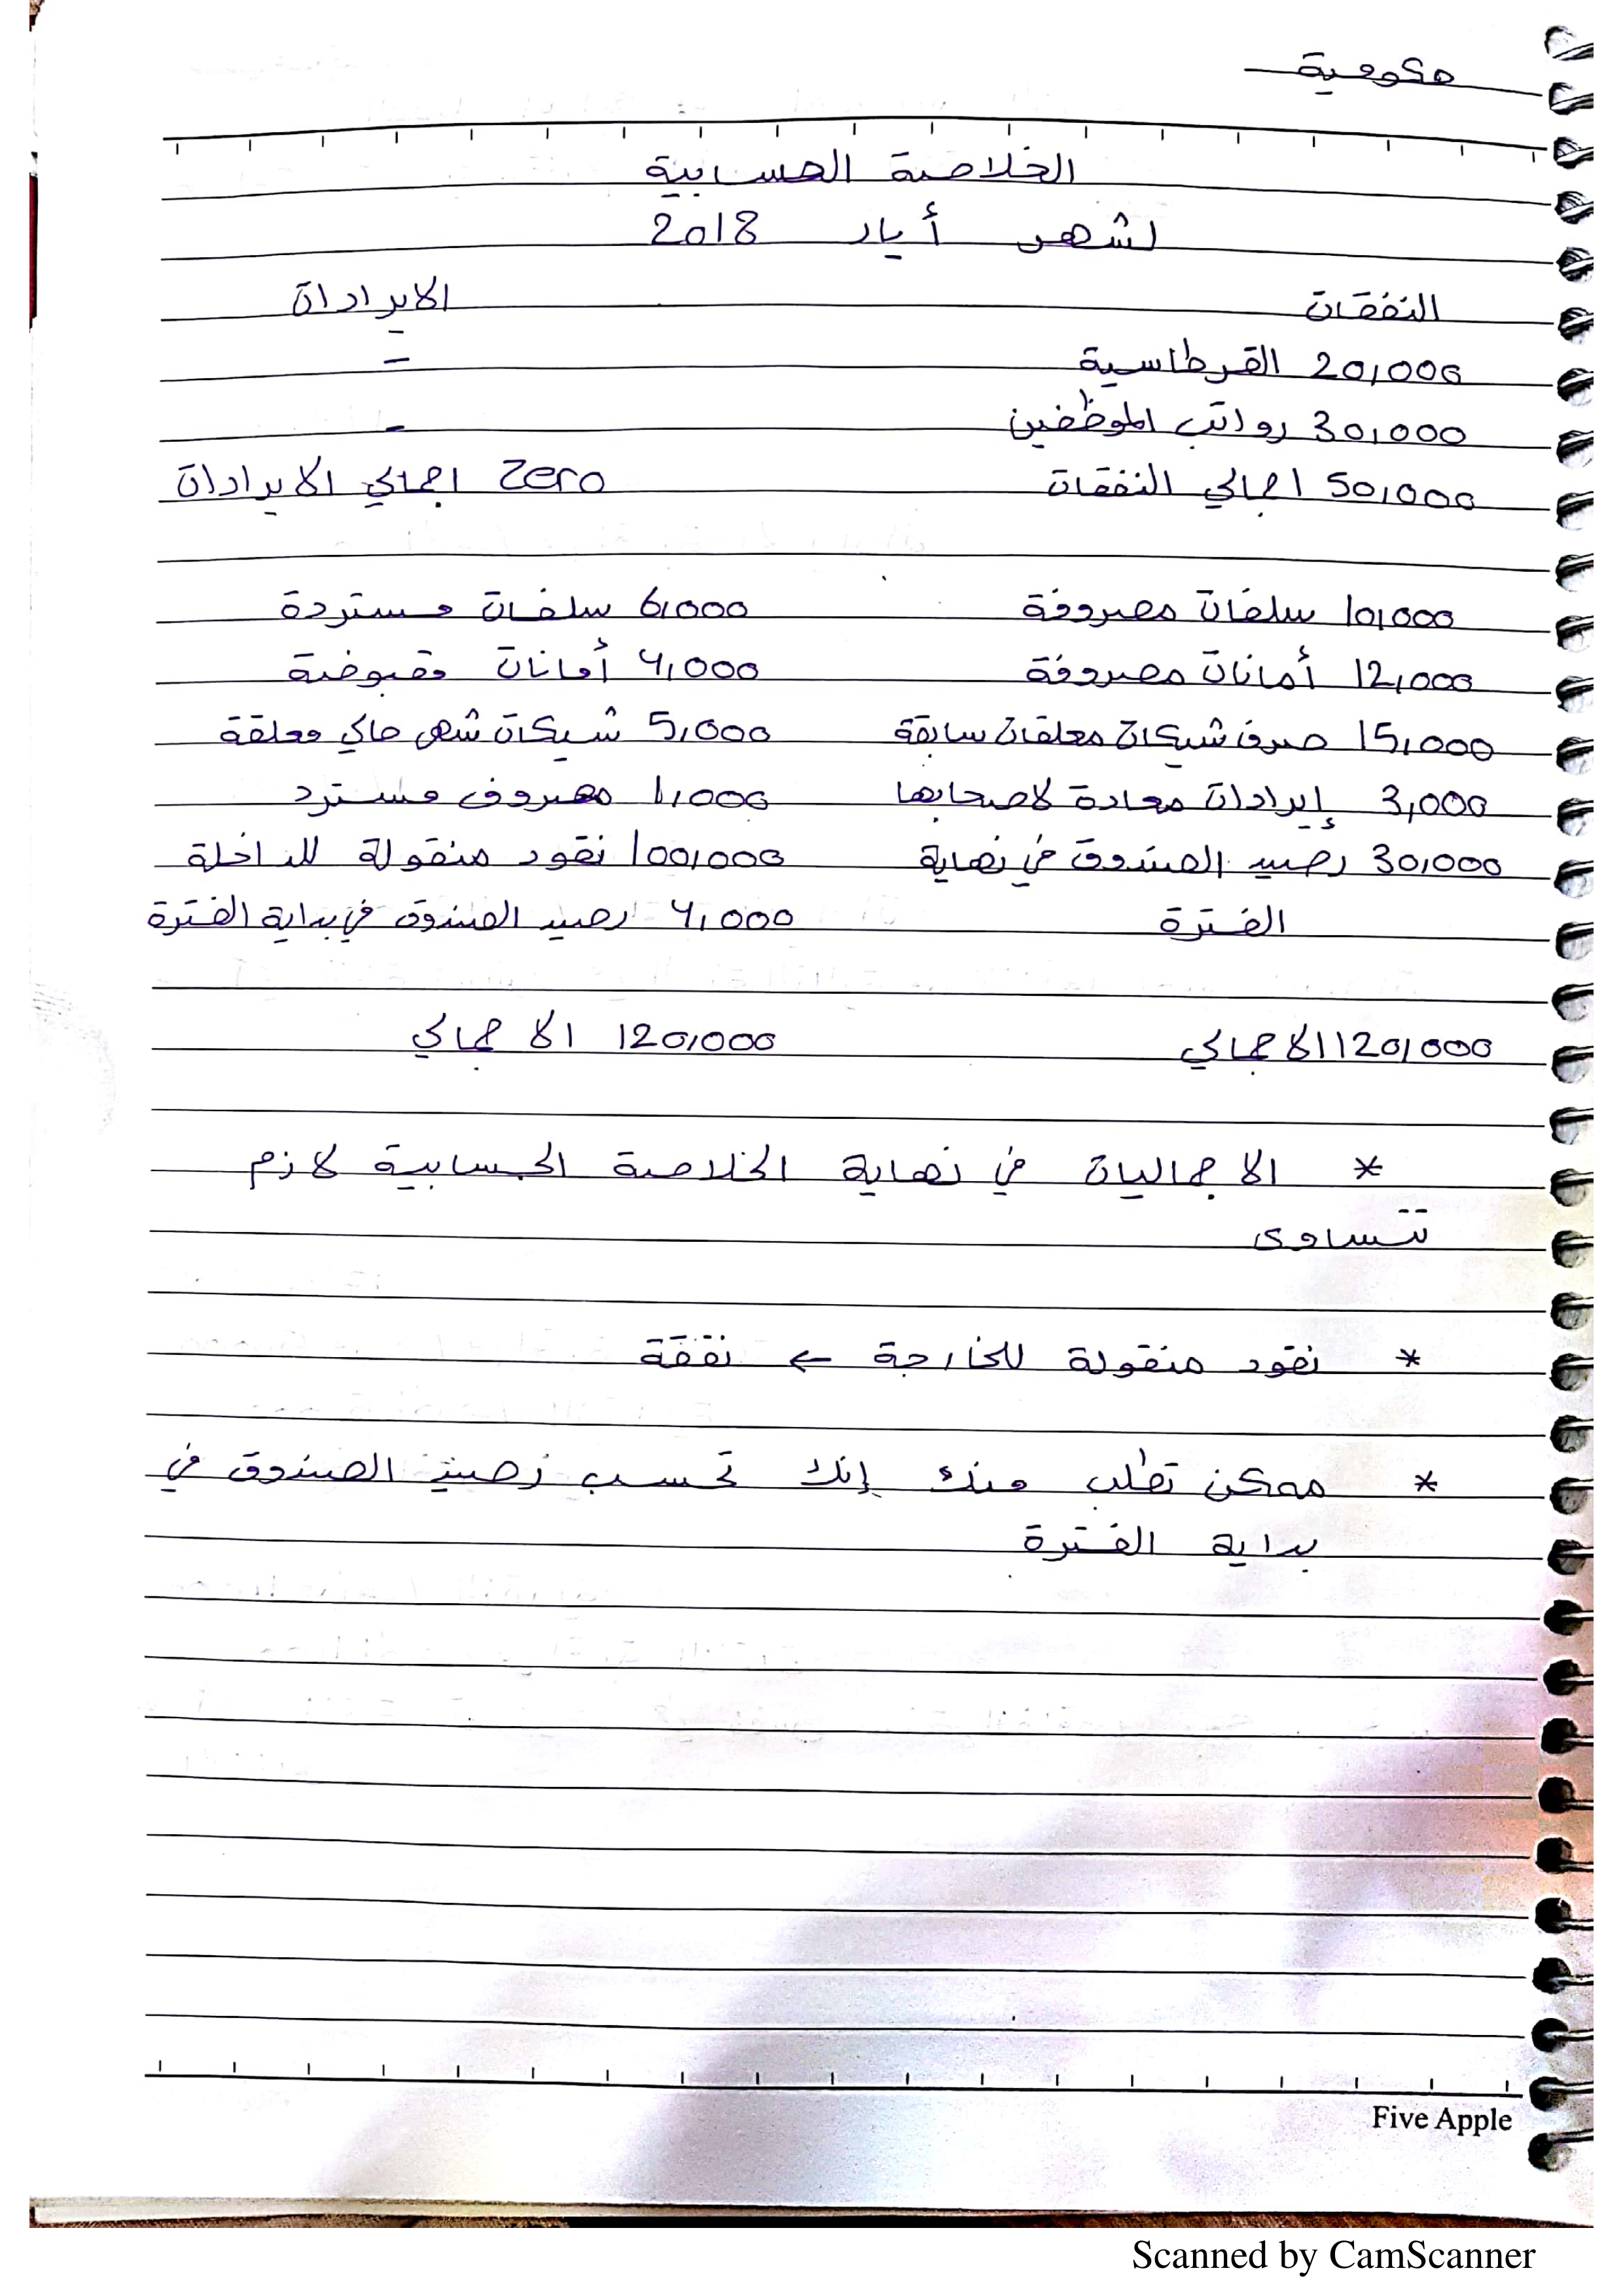 حكومية
الخلاصة الحسابية
لشهر أيار 2018
النفقات الايرادات
20,000 القرطاسية -
30,000 رواتب الموظفين -
50,000 اجمالي النفقات Zero اجمالي الايرادات
10,000 سلفات مصروفة 6,000 سلفات مستردة
12,000 أمانات مصروفة 4,000 أمانات مقبوضة
15,000 صرف شيكات معلقات سابقة 5,000 شيكات شهر حالي معلقة
3,000 إيرادات معادة لاصحابها 1,000 مصروف مسترد
30,000 رصيد الصندوق في نهاية 100,000 نقود منقولة للداخلة
الفترة 4,000 رصيد الصندوق في بداية الفترة
120,000 الاجمالي 120,000 الاجمالي
* الاجماليات في نهاية الخلاصة الحسابية لازم
تتساوى
* نقود منقولة للخارجة ← نفقة
* ممكن تطلب منك إنك تحسب رصيد الصندوق في
بداية الفترة
Five Apple
Scanned by CamScanner